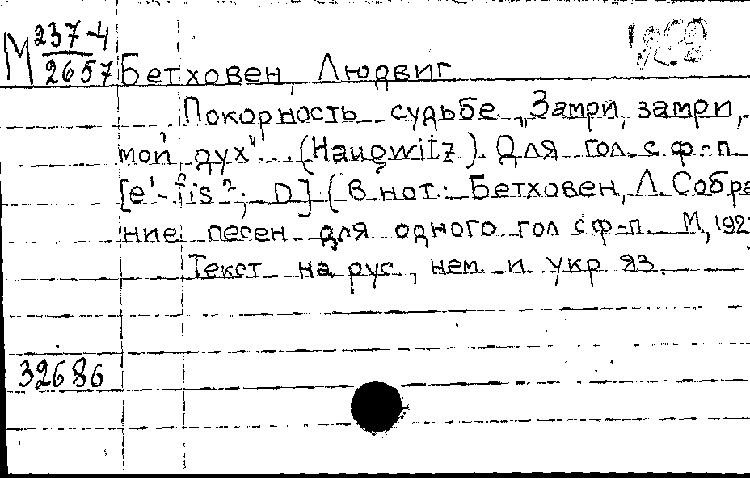 М 237-4
2657
Бетховен, Людвиг
Покорность судьбе „Замри, замри,
мой дух" (Haugwitz). Для гол. с ф-п
[e¹-fis²; D] (В нот: Бетховен, Л. Собра
ние песен для одного гол с ф-п. М, 192
Текст на рус, нем и укр яз.
32686